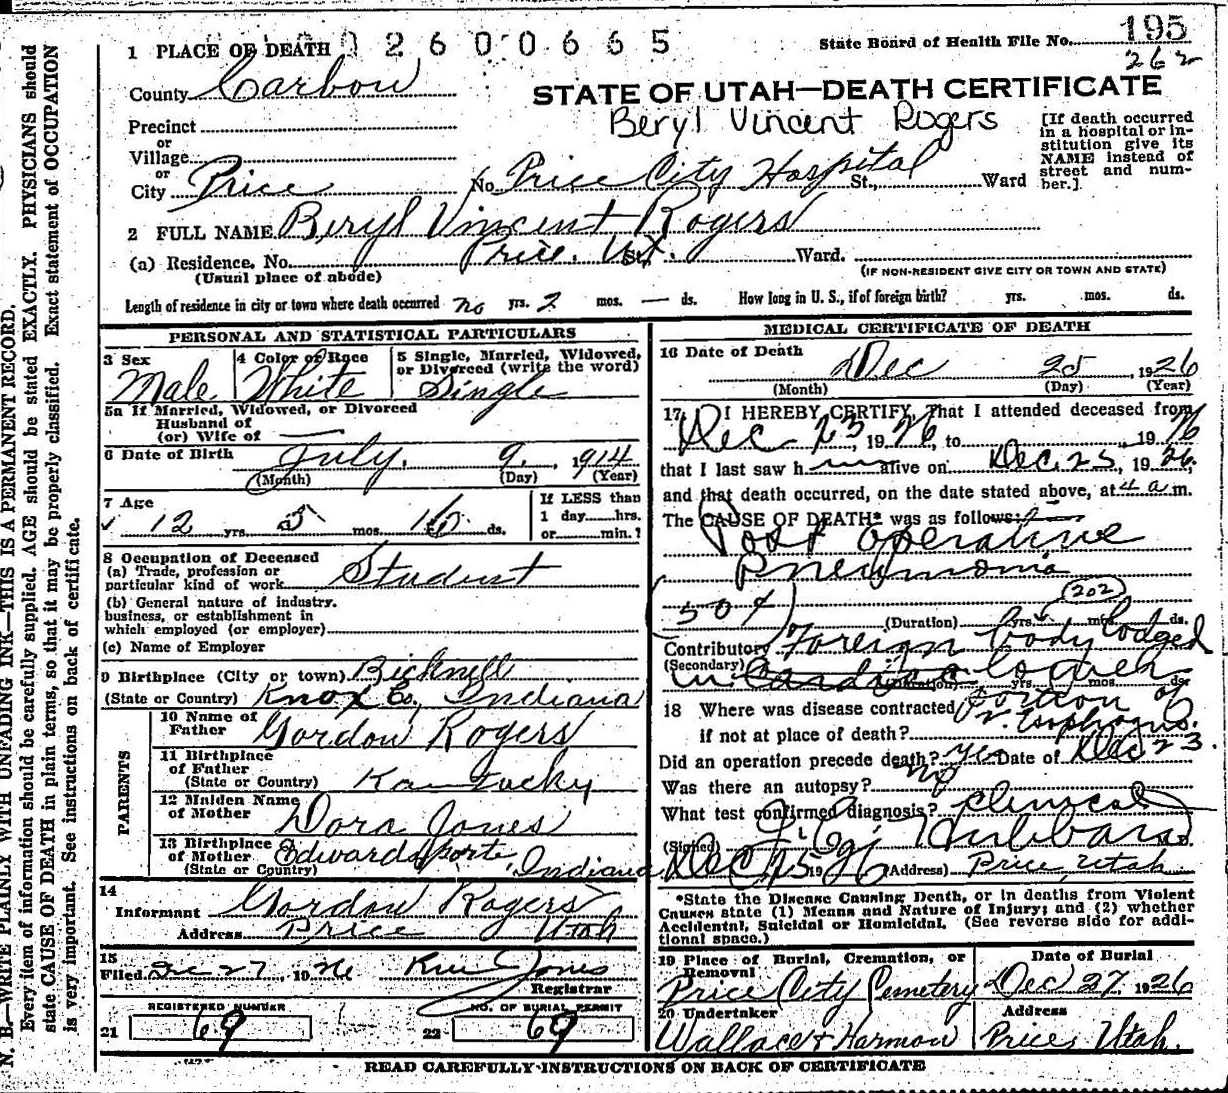 195
1 PLACE OF DEATH 0 2 6 0 0 6 6 5 State Board of Health File No.
262
County Carbon
STATE OF UTAH—DEATH CERTIFICATE
Beryl Vincent Rogers
Precinct
or
Village
or
City Price No. Price City Hospital St., Ward
[If death occurred
in a hospital or in-
stitution give its
NAME instead of
street and num-
ber.]
2 FULL NAME Beryl Vincent Rogers
(a) Residence. No. Price, Ut. St. Ward.
(Usual place of abode)
(IF NON-RESIDENT GIVE CITY OR TOWN AND STATE)
Length of residence in city or town where death occurred no yrs. 2 mos. — ds. How long in U. S., if of foreign birth? yrs. mos. ds.
N. B.—WRITE PLAINLY WITH UNFADING INK—THIS IS A PERMANENT RECORD.
Every item of information should be carefully supplied. AGE should be stated EXACTLY. PHYSICIANS should
state CAUSE OF DEATH in plain terms, so that it may be properly classified. Exact statement of OCCUPATION
is very important. See instructions on back of certificate.
PERSONAL AND STATISTICAL PARTICULARS
3 Sex
Male
4 Color or Race
White
5 Single, Married, Widowed,
or Divorced (write the word)
Single
5a If Married, Widowed, or Divorced
Husband of
(or) Wife of —
6 Date of Birth July. 9, 1914
(Month) (Day) (Year)
7 Age
12 yrs. 5 mos. 16 ds.
If LESS than
1 day......hrs.
or......min.?
8 Occupation of Deceased
(a) Trade, profession or
particular kind of work Student
(b) General nature of industry.
business, or establishment in
which employed (or employer)
(c) Name of Employer
9 Birthplace (City or town) Bicknell
(State or Country) Knox Co, Indiana
PARENTS
10 Name of
Father Gordon Rogers
11 Birthplace
of Father
(State or Country) Kentucky
12 Maiden Name
of Mother Dora Jones
13 Birthplace
of Mother Edwardsporte, Indiana
(State or Country)
14
Informant Gordon Rogers
Address Price Utah
15
Filed Dec 27, 1926 Jones
Registrar
REGISTERED NUMBER
21 69
NO. OF BURIAL PERMIT
22 69
MEDICAL CERTIFICATE OF DEATH
16 Date of Death
Dec 25, 1926
(Month) (Day) (Year)
17. I HEREBY CERTIFY, That I attended deceased from
Dec 23, 1926, to , 1926
that I last saw him alive on Dec. 25, 1926.
and that death occurred, on the date stated above, at 4 a m.
The CAUSE OF DEATH* was as follows:
Post Operative
Pneumonia
(202)
(Duration) yrs. mos. ds.
Contributory Foreign body lodged
(Secondary) in Cardiac lower
(Duration) yrs. mos. ds.
portion of
18 Where was disease contracted
if not at place of death? Esophagus.
Did an operation precede death? yes Date of Dec 23.
Was there an autopsy? no
What test confirmed diagnosis? Clinical
(Signed) Hubbard
Dec 25 1926 (Address) Price, Utah
*State the Disease Causing Death, or in deaths from Violent
Causes state (1) Means and Nature of Injury; and (2) whether
Accidental, Suicidal or Homicidal. (See reverse side for addi-
tional space.)
19 Place of Burial, Cremation, or
Removal
Price City Cemetery
Date of Burial
Dec 27, 1926
20 Undertaker
Wallace & Harmon
Address
Price, Utah.
READ CAREFULLY INSTRUCTIONS ON BACK OF CERTIFICATE